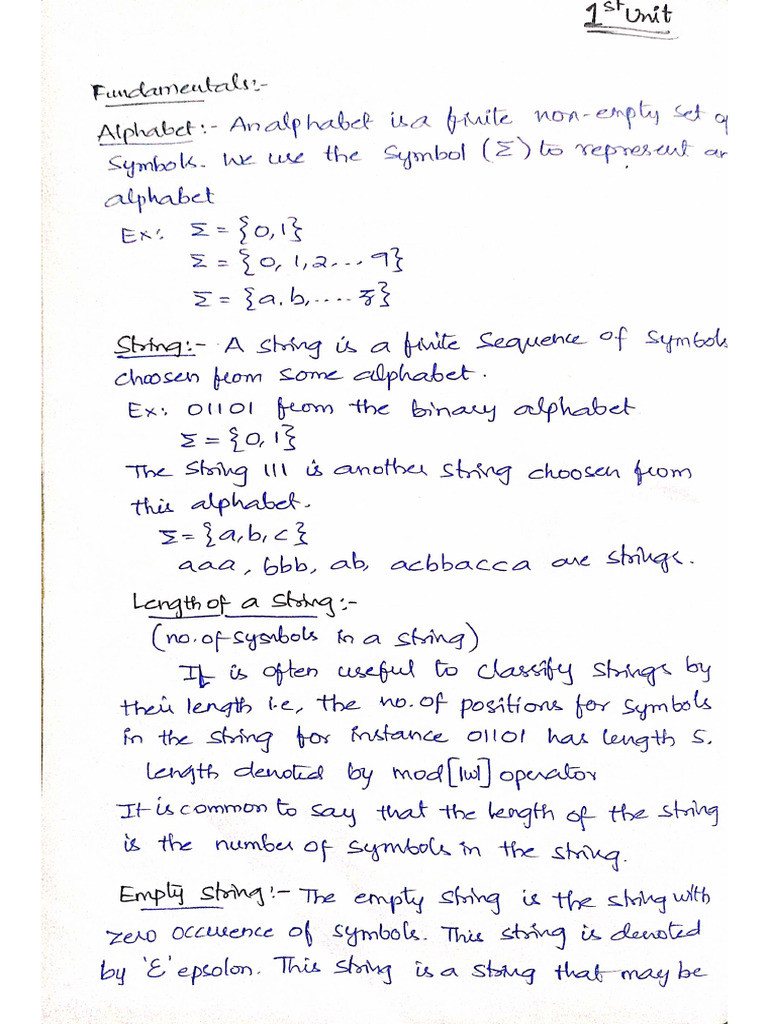 1st Unit
Fundamentals:-
Alphabet:- An alphabet is a finite non-empty set of
symbols. We use the symbol (Σ) to represent an
alphabet
Ex: Σ = {0,1}
Σ = {0, 1,2...9}
Σ = {a,b,....z}
String:- A string is a finite sequence of symbols
choosen from some alphabet.
Ex: 01101 from the binary alphabet
Σ = {0,1}
The string 111 is another string choosen from
this alphabet.
Σ = {a,b,c}
aaa, bbb, ab, acbbacca are strings.
Length of a string:-
(no. of symbols in a string)
It is often useful to classify strings by
their length i.e, the no. of positions for symbols
in the string for instance 01101 has length 5.
length denoted by mod[|w|] operator
It is common to say that the length of the string
is the number of symbols in the string.
Empty string:- The empty string is the string with
zero occurence of symbols. This string is denoted
by 'ε' epsolon. This string is a string that may be